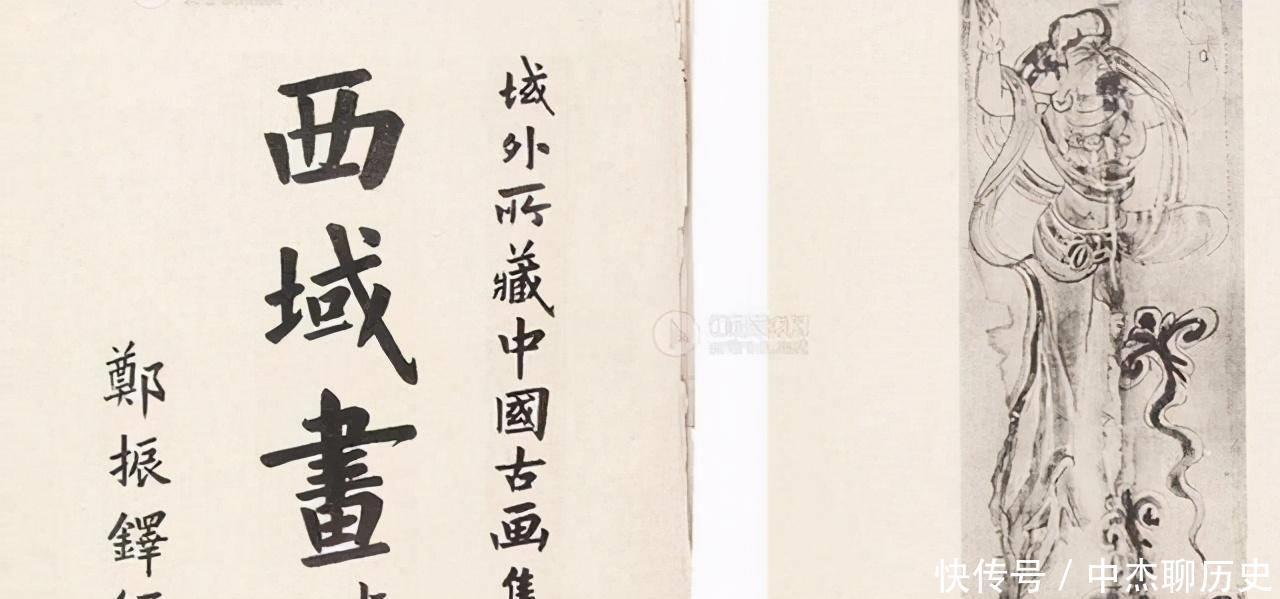 域外所藏中國古画集
西域畫
鄭振鐸
快传号 / 中杰聊历史